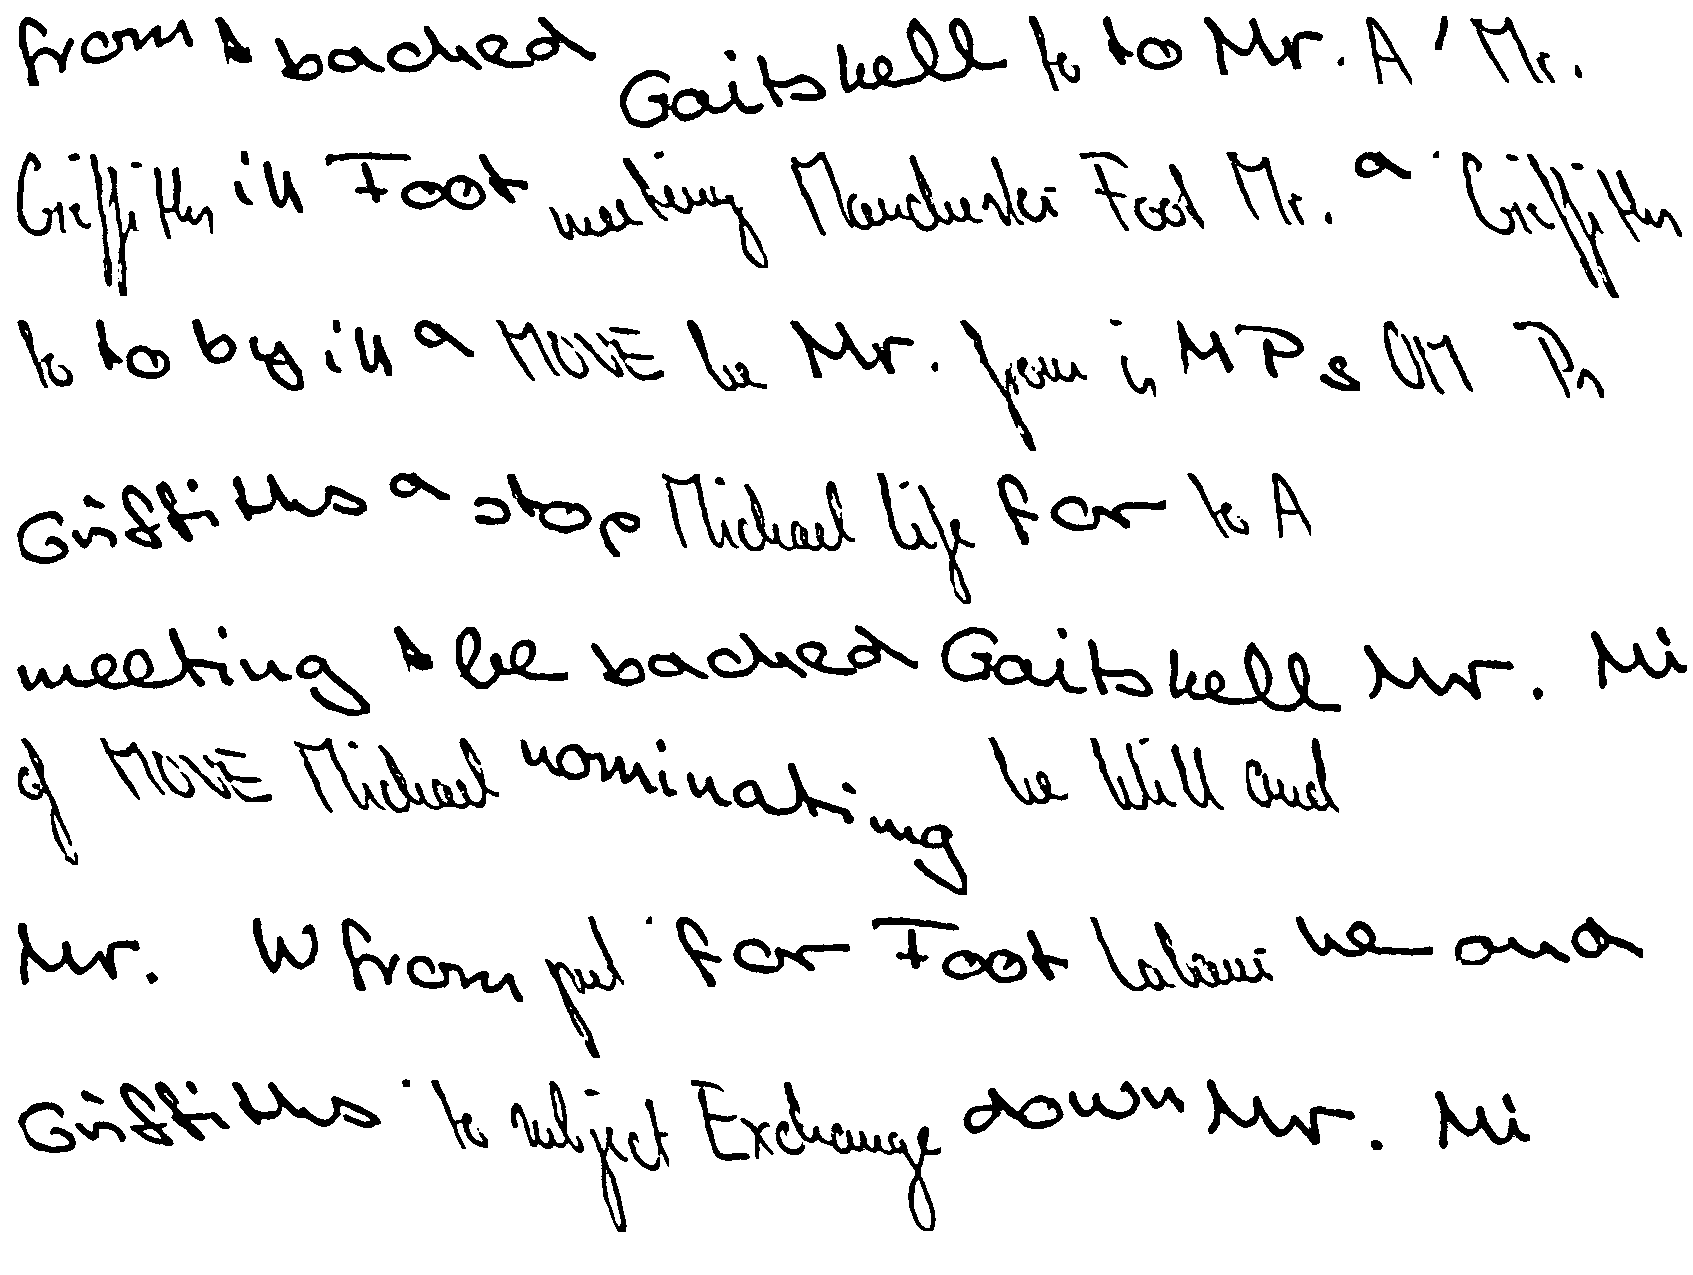 from & backed Gaitskell to to Mr. A ' Mr.
Griffiths in Foot meeting Manchester Foot Mr. a ' Griffiths
to to by in a MOVE be Mr. from is MPs OM Pr
Griffiths a stop Michael life for to A
meeting & be backed Gaitskell Mr. Mi
of MOVE Michael nominating he Will and
Mr. W from put ' for Foot Labour he and
Griffiths ' to subject Exchange down Mr. Mi